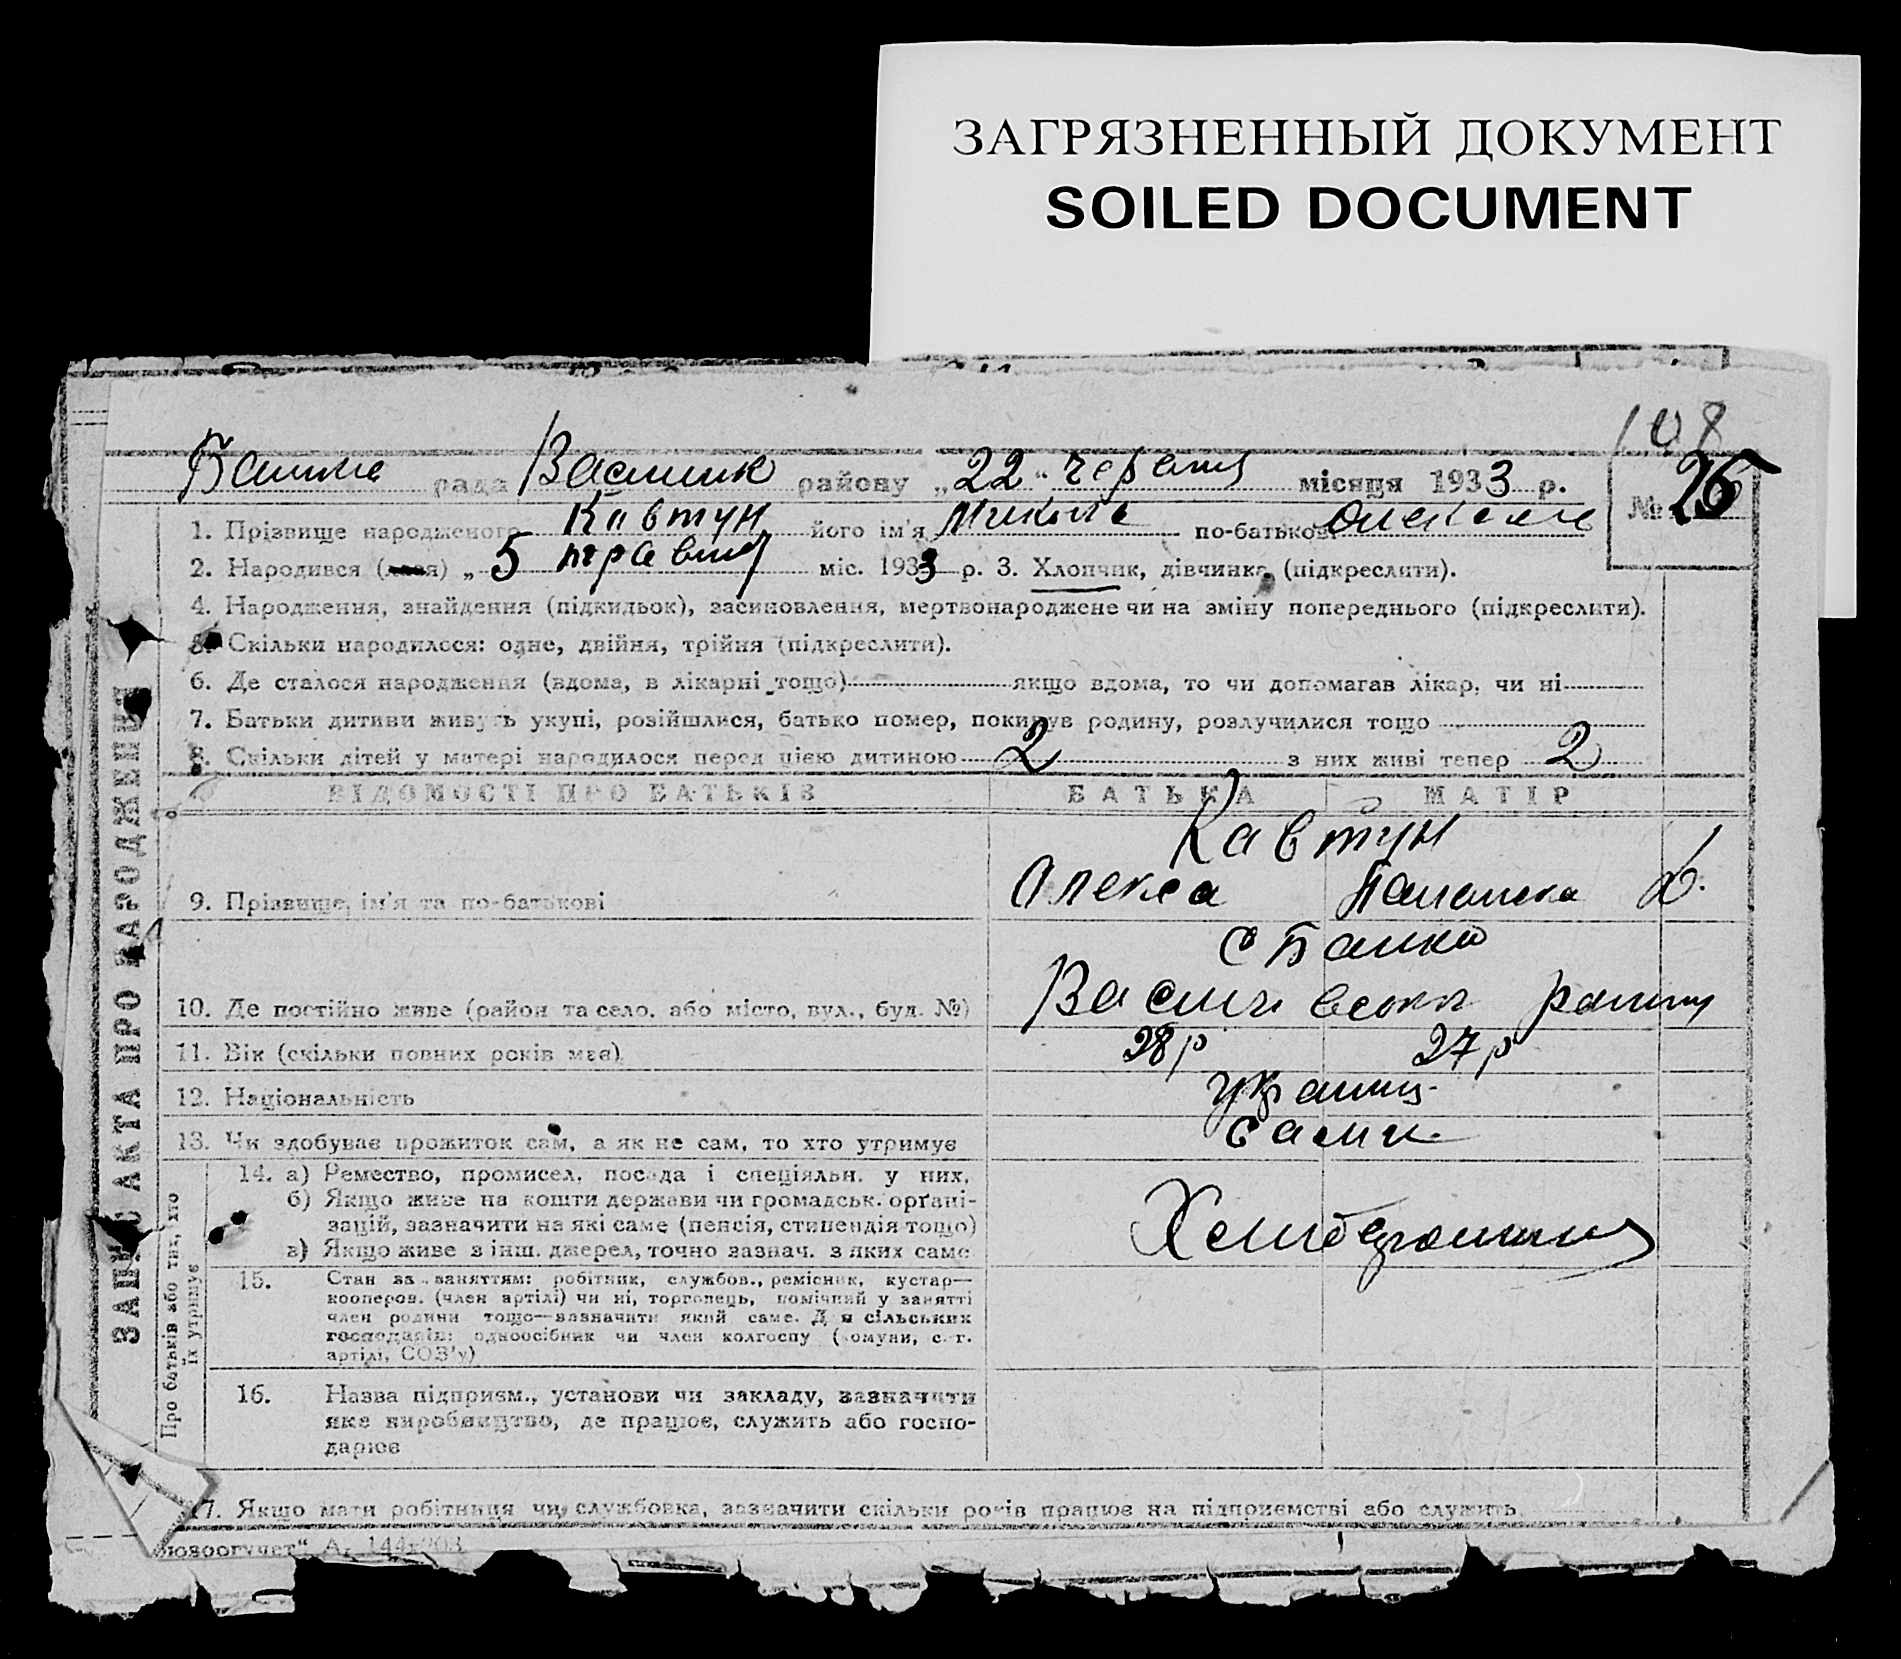 ЗАГРЯЗНЕННЫЙ ДОКУМЕНТ
SOILED DOCUMENT
108
рада району „22“ червня місяця 1933 р.
№ 26
1. Прізвище народженого Кавтун його ім'я Микола по-батькові
2. Народився (лася) „5 травня міс. 1933 р. 3. Хлопчик, дівчинка, (підкреслити).
4. Народження, знайдення (підкидьок), засиновлення, мертвонароджене чи на зміну попереднього (підкреслити).
5. Скільки народилося: одне, двійня, трійня (підкреслити).
6. Де сталося народження (вдома, в лікарні тощо) якщо вдома, то чи допомагав лікар, чи ні
7. Батьки дитини живуть укупі, розійшлися, батько помер, покинув родину, розлучилися тощо
8. Скільки дітей у матері народилося перед цією дитиною 2 з них живі тепер 2
ВІДОМОСТІ ПРО БАТЬКІВ БАТЬКА МАТІР
Кавтун
9. Прізвище, ім'я та по-батькові Олекса
10. Де постійно живе (район та село, або місто, вул., буд. №)
11. Вік (скільки повних років має) 28 р 27 р
12. Національність украинц.
13. Чи здобуває прожиток сам, а як не сам, то хто утримує сами
14. а) Ремество, промисел, посада і спеціяльн. у них.
б) Якщо живе на кошти держави чи громадськ. органі-
зацій, зазначити на які саме (пенсія, стипендія тощо)
в) Якщо живе з інш. джерел, точно зазнач. з яких саме
15. Стан за заняттям: робітник, службов., ремісник, кустар—
кооперов. (член артілі) чи ні, торговець, помічний у занятті
член родини тощо—зазначити який саме. Для сільських
господарів: одноосібник чи член колгоспу (комуни, с.-г.
артілі, СОЗ'у)
16. Назва підприєм., установи чи закладу, зазначити
яке виробництво, де працює, служить або госпо-
дарює
17. Якщо мати робітниця чи службовка, зазначити скільки років працює на підприємстві або служить
ЗАПИС АКТА ПРО НАРОДЖЕННЯ
Про батьків або тих, хто
їх утримує